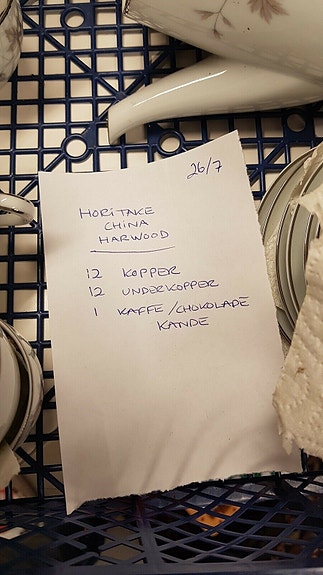 26/7
HORITAKE
CHINA
HARWOOD
12 KOPPER
12 UNDERKOPPER
1 KAFFE/CHOKOLADE
KANDE